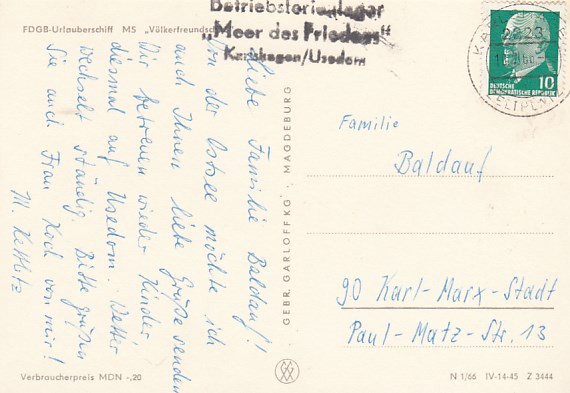 FDGB-Urlauberschiff MS „Völkerfreundschaft
Betriebsferienlager
„Meer des Friedens"
Karlshagen/Usedom
Liebe Familie Baldauf!
Von der Ostsee möchte ich
auch Ihnen liebe Grüße senden
Wir betreuen wieder Kinder
diesmal auf Usedom. Wetter
wechselt ständig. Bitte grüßen
Sie auch Frau Koch von mir!
M.
GEBR. GARLOFF KG · MAGDEBURG
DEUTSCHE
DEMOKRATISCHE REPUBLIK
10
Familie
Baldauf
90 Karl-Marx-Stadt
Paul-Matz-Str. 13
Verbraucherpreis MDN -,20
N 1/66 IV-14-45 Z 3444